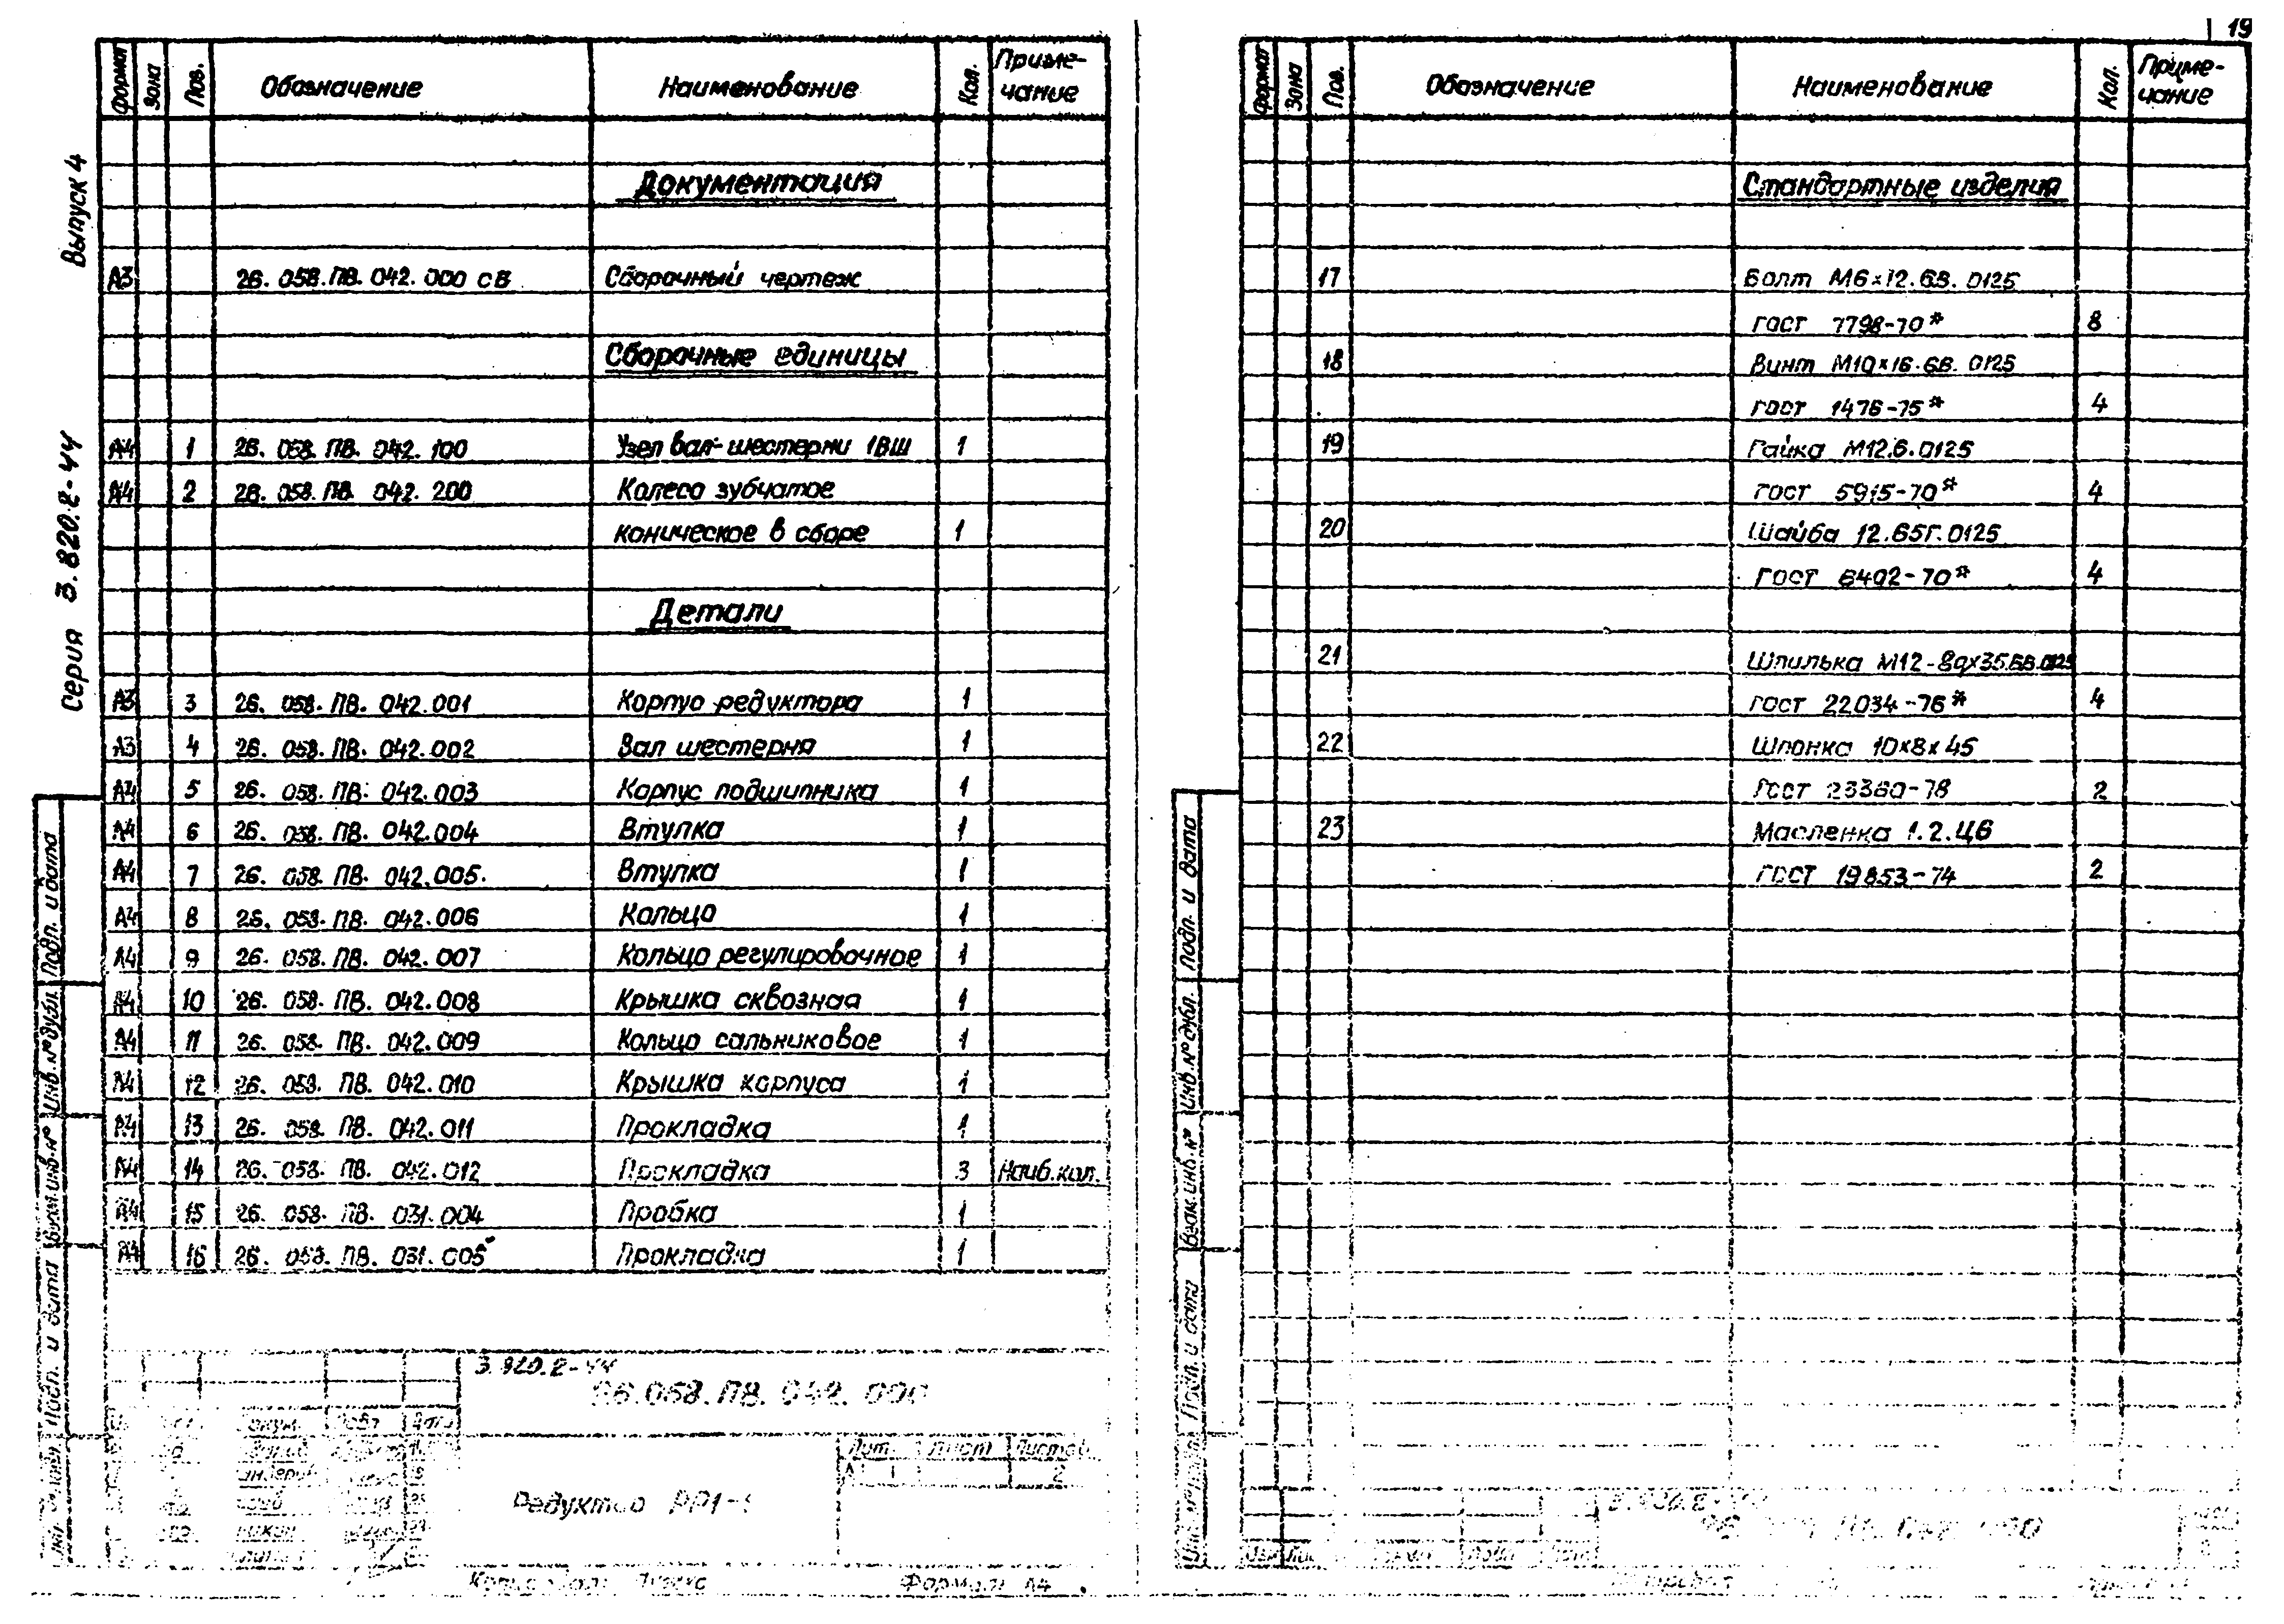 19
Выпуск 4
Серия 3.820.2-44
Формат Зона Поз. Обозначение Наименование Кол. Приме-
чание
Документация
А3 26.058.ПВ.042.000 СБ Сборочный чертеж
Сборочные единицы
А4 1 26.058.ПВ.042.100 Узел вал-шестерни 1ВШ 1
А4 2 26.058.ПВ.042.200 Колесо зубчатое
коническое в сборе 1
Детали
А3 3 26.058.ПВ.042.001 Корпус редуктора 1
А3 4 26.058.ПВ.042.002 Вал шестерня 1
А4 5 26.058.ПВ.042.003 Корпус подшипника 1
А4 6 26.058.ПВ.042.004 Втулка 1
А4 7 26.058.ПВ.042.005. Втулка 1
А4 8 26.058.ПВ.042.006 Кольцо 1
А4 9 26.058.ПВ.042.007 Кольцо регулировочное 1
А4 10 26.058.ПВ.042.008 Крышка сквозная 1
А4 11 26.058.ПВ.042.009 Кольцо сальниковое 1
А4 12 26.058.ПВ.042.010 Крышка корпуса 1
А4 13 26.058.ПВ.042.011 Прокладка 1
А4 14 26.058.ПВ.042.012 Прокладка 3 Наиб.кол.
А4 15 26.058.ПВ.031.004 Пробка 1
А4 16 26.058.ПВ.031.005 Прокладка 1
Подп. и дата
Инв.№ дубл.
Взам.инв.№
Подп. и дата
3.820.2-44
26.058.ПВ.042.000
Лит. Лист Листов
А 2
Редуктор
Формат А4
Формат Зона Поз. Обозначение Наименование Кол. Приме-
чание
Стандартные изделия
17 Болт М6×12.6В.0125
ГОСТ 7798-70* 8
18 Винт М10×16.6В.0125
ГОСТ 1476-75* 4
19 Гайка М12.6.0125
ГОСТ 5915-70* 4
20 Шайба 12.65Г.0125
ГОСТ 6402-70* 4
21 Шпилька М12-8g×35.6В.0125
ГОСТ 22034-76* 4
22 Шпонка 10×8×45
ГОСТ 23360-78 2
23 Масленка 1.2.Ц6
ГОСТ 19853-74 2
Подп. и дата
Инв.№ дубл.
Взам.инв.№
Подп. и дата